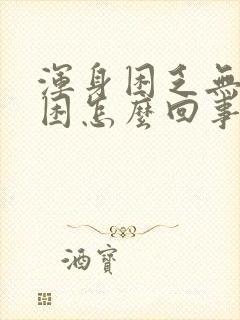 渾身困乏無
困怎麼回事
酒寶